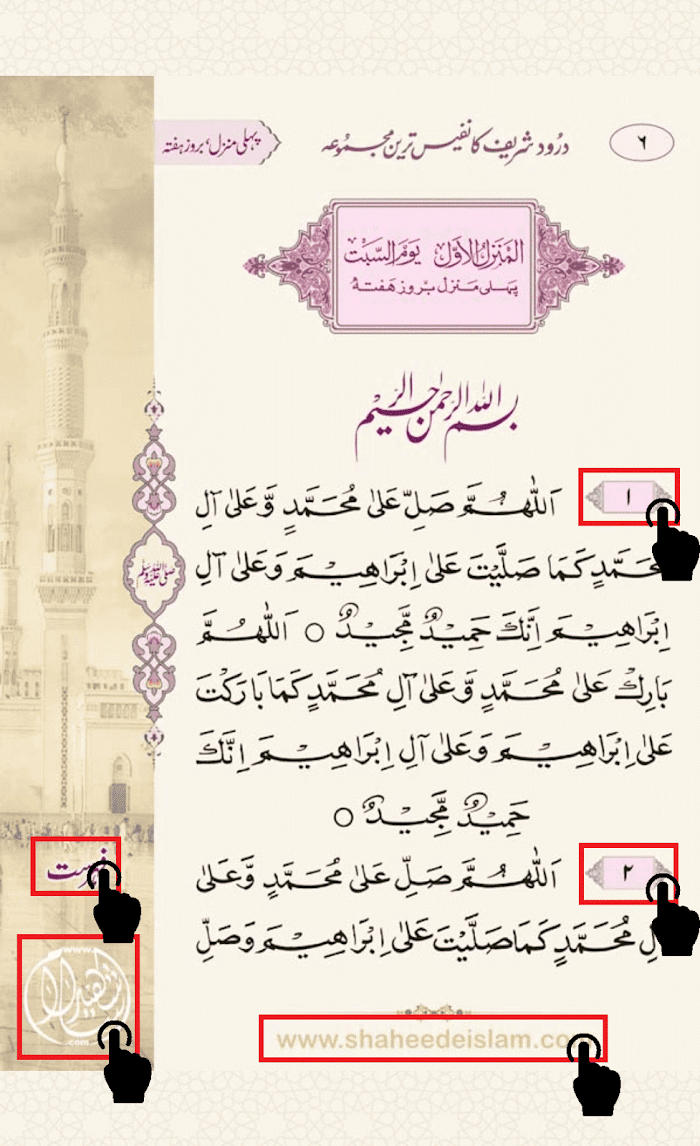 ٦
درُود شریف کا نفیس ترین مجمُوعہ
پہلی منزل، بروز ہفتہ
اَلمَنزلُ الأوّل يَومُ السَّبْت
پہلی منزل بروز هفتہ
بسم الله الرحمن الرحيم
١ اَللّٰهُمَّ صَلِّ عَلىٰ مُحَمَّدٍ وَّعَلىٰ آلِ
مُحَمَّدٍ كَمَا صَلَّيْتَ عَلىٰ اِبْرَاهِيْمَ وَعَلىٰ آلِ
اِبْرَاهِيْمَ اِنَّكَ حَمِيْدٌ مَّجِيْدٌ ○ اَللّٰهُمَّ
بَارِكْ عَلىٰ مُحَمَّدٍ وَّعَلىٰ آلِ مُحَمَّدٍ كَمَا بَارَكْتَ
عَلىٰ اِبْرَاهِيْمَ وَعَلىٰ آلِ اِبْرَاهِيْمَ اِنَّكَ
حَمِيْدٌ مَّجِيْدٌ ○
٢ اَللّٰهُمَّ صَلِّ عَلىٰ مُحَمَّدٍ وَّعَلىٰ
آلِ مُحَمَّدٍ كَمَا صَلَّيْتَ عَلىٰ اِبْرَاهِيْمَ وَصَلِّ
صلى الله عليه وسلم
فہرست
.com
www.shaheedeislam.com